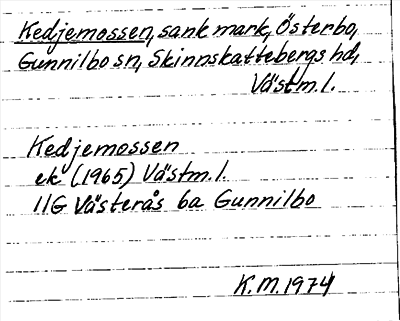 Kedjemossen, sank mark, Österbo,
Gunnilbo sn, Skinnskattebergs hd,
Västm.l.
Kedjemossen
ek (1965) Västm.l.
11G Västerås 6a Gunnilbo
K.M.1974